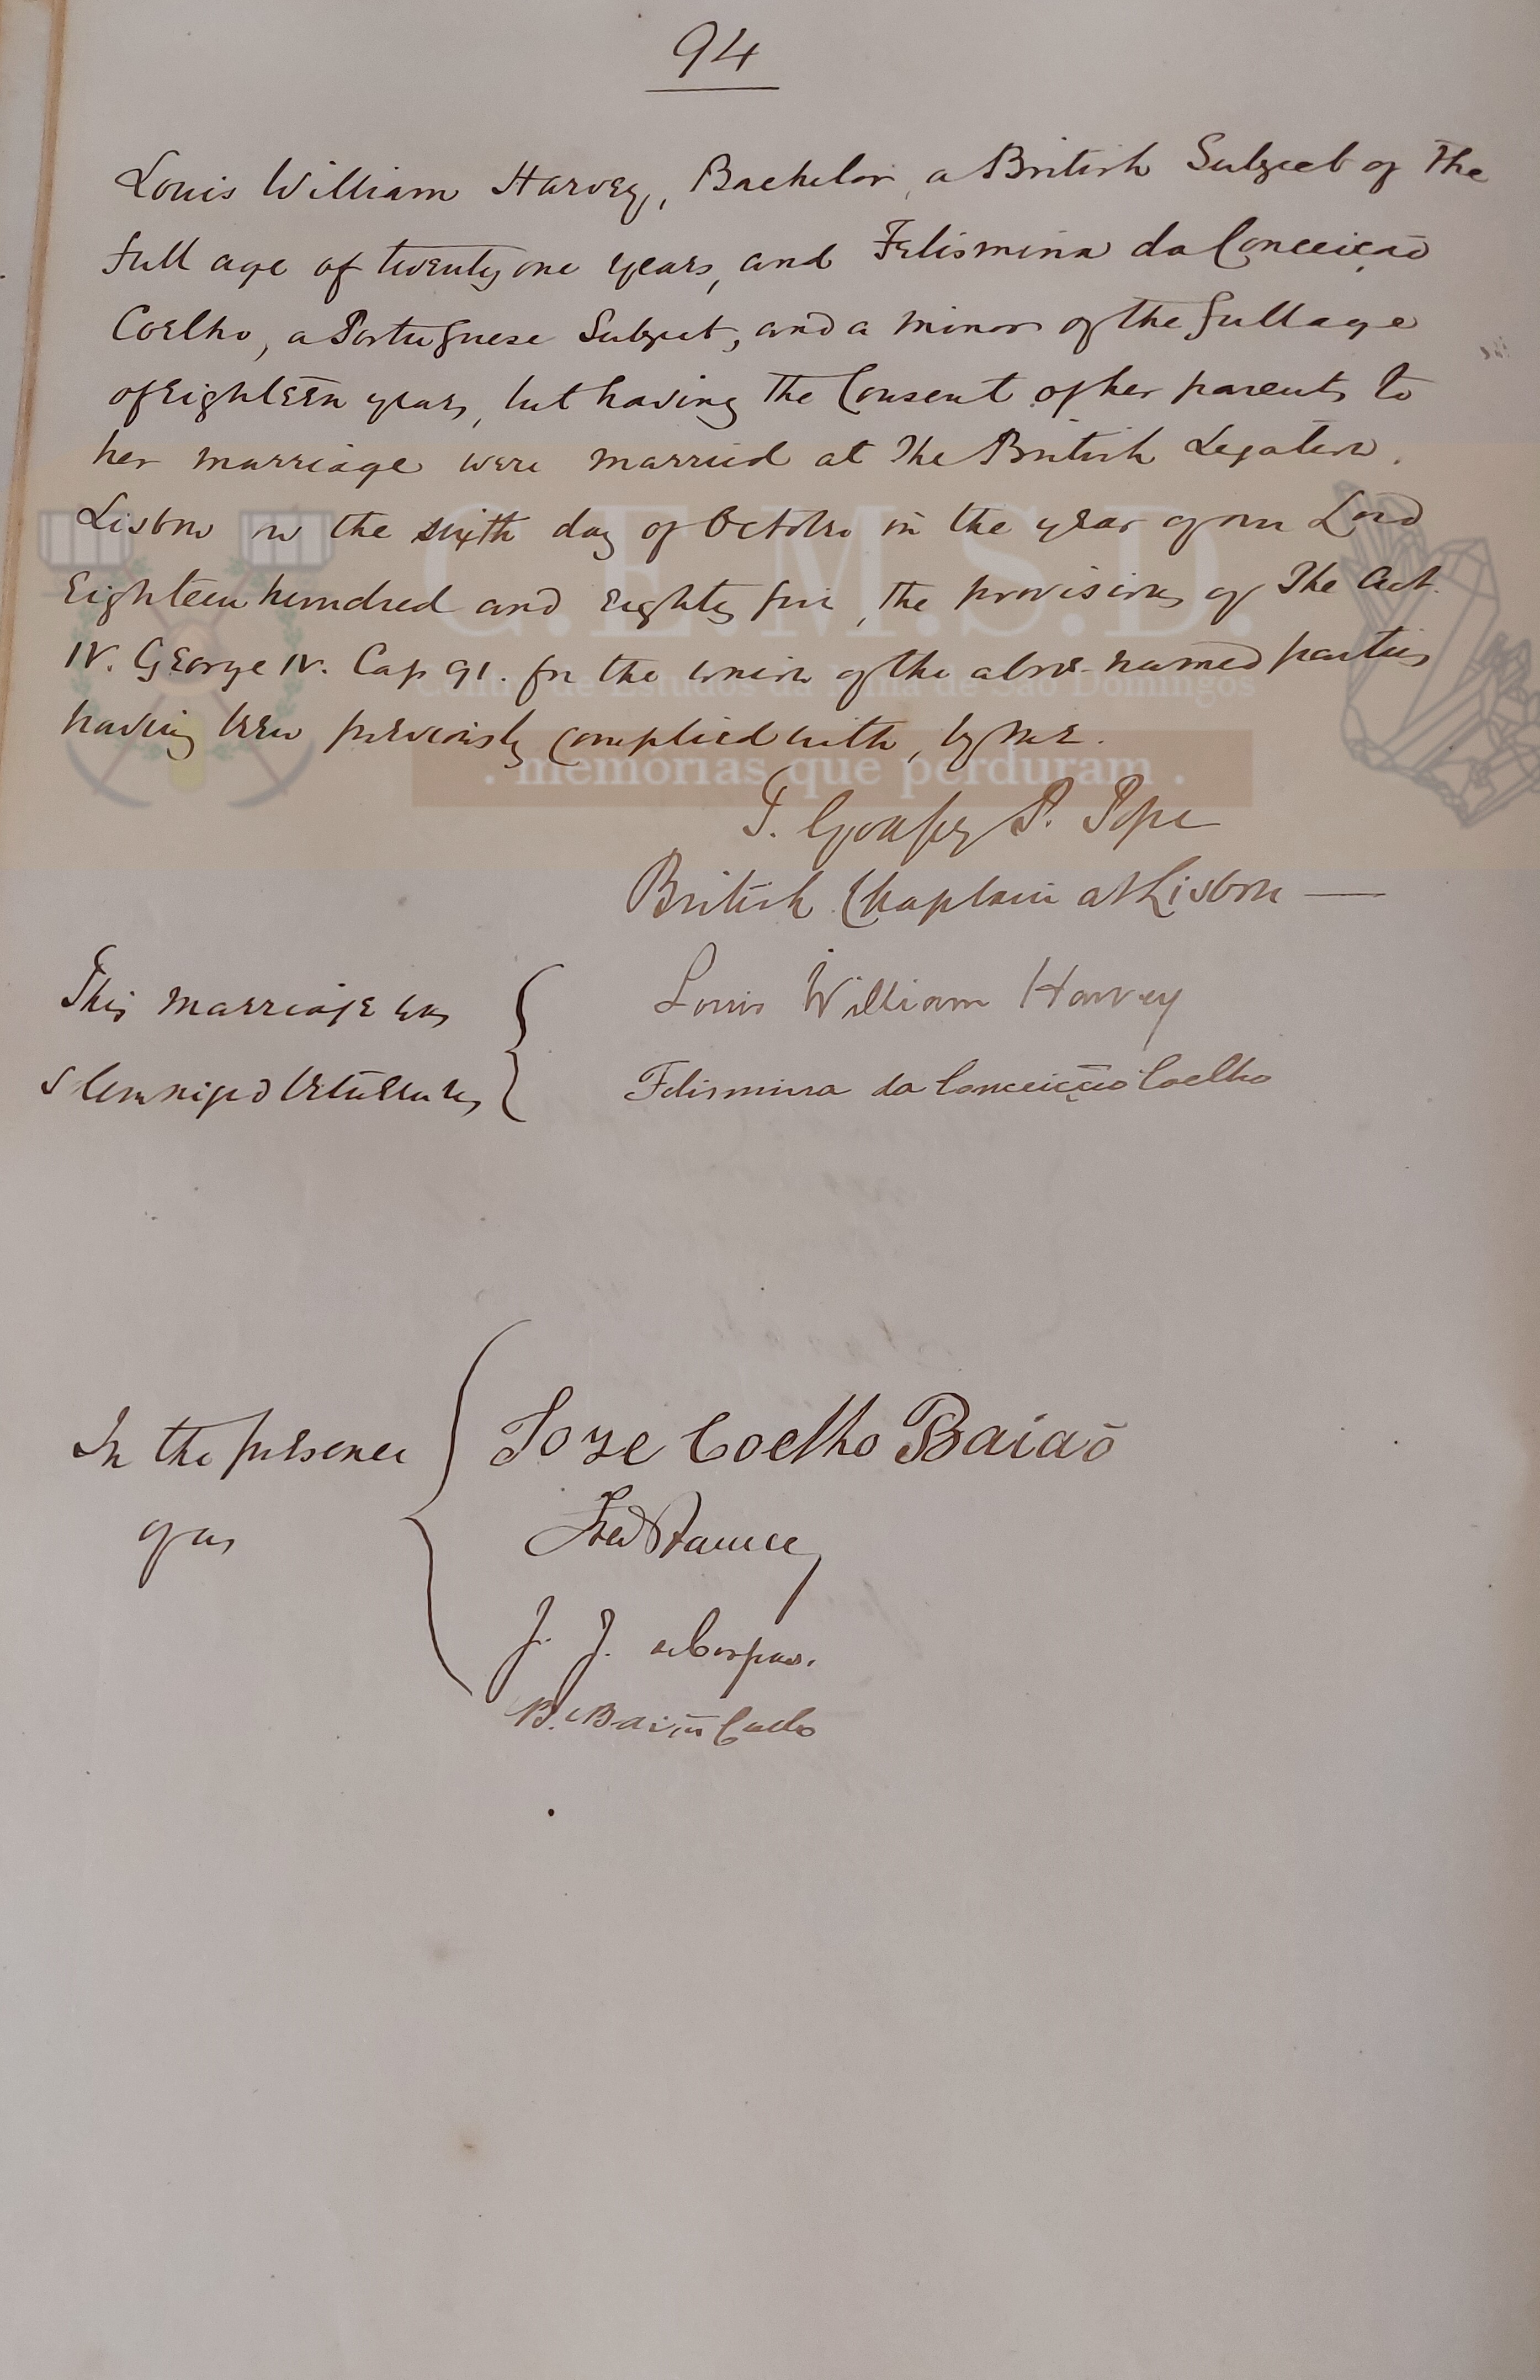 94
Louis William Harvey, Bachelor, a British Subject of The
full age of twenty one years, and Felismina da Conceição
Coelho, a Portuguese Subject, and a minor of the full age
of Eighteen years, but having the Consent of her parents to
her marriage were married at The British Legation.
Lisbon on the sixth day of October in the year of our Lord
Eighteen hundred and Eighty five, the provisions of The Act.
IV. George IV. Cap 91. for the union of the above-named parties
having been previously complied with, by me.
C.E.M.S.D.
Centro de Estudos da Mina de São Domingos
. memórias que perduram .
T. Godfrey P. Pope
British Chaplain at Lisbon —
This marriage was
solemnized between us
Louis William Harvey
Felismina da Conceição Coelho
In the presence
of us
Joze Coelho Baiaõ
J. J.
B. Baião Coelho